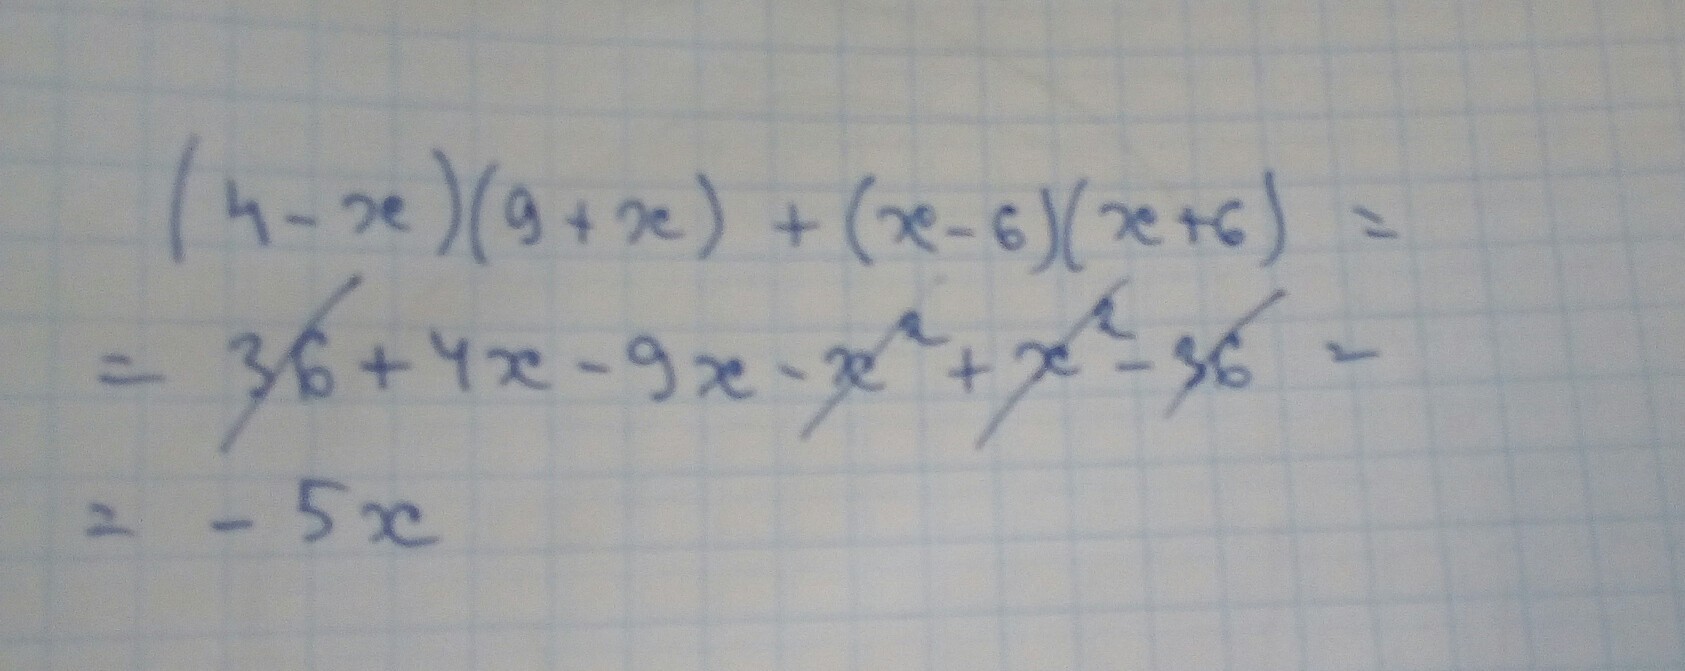 (4-x)(9+x) + (x-6)(x+6) =
= 36+4x-9x-x²+x²-36 =
= -5x